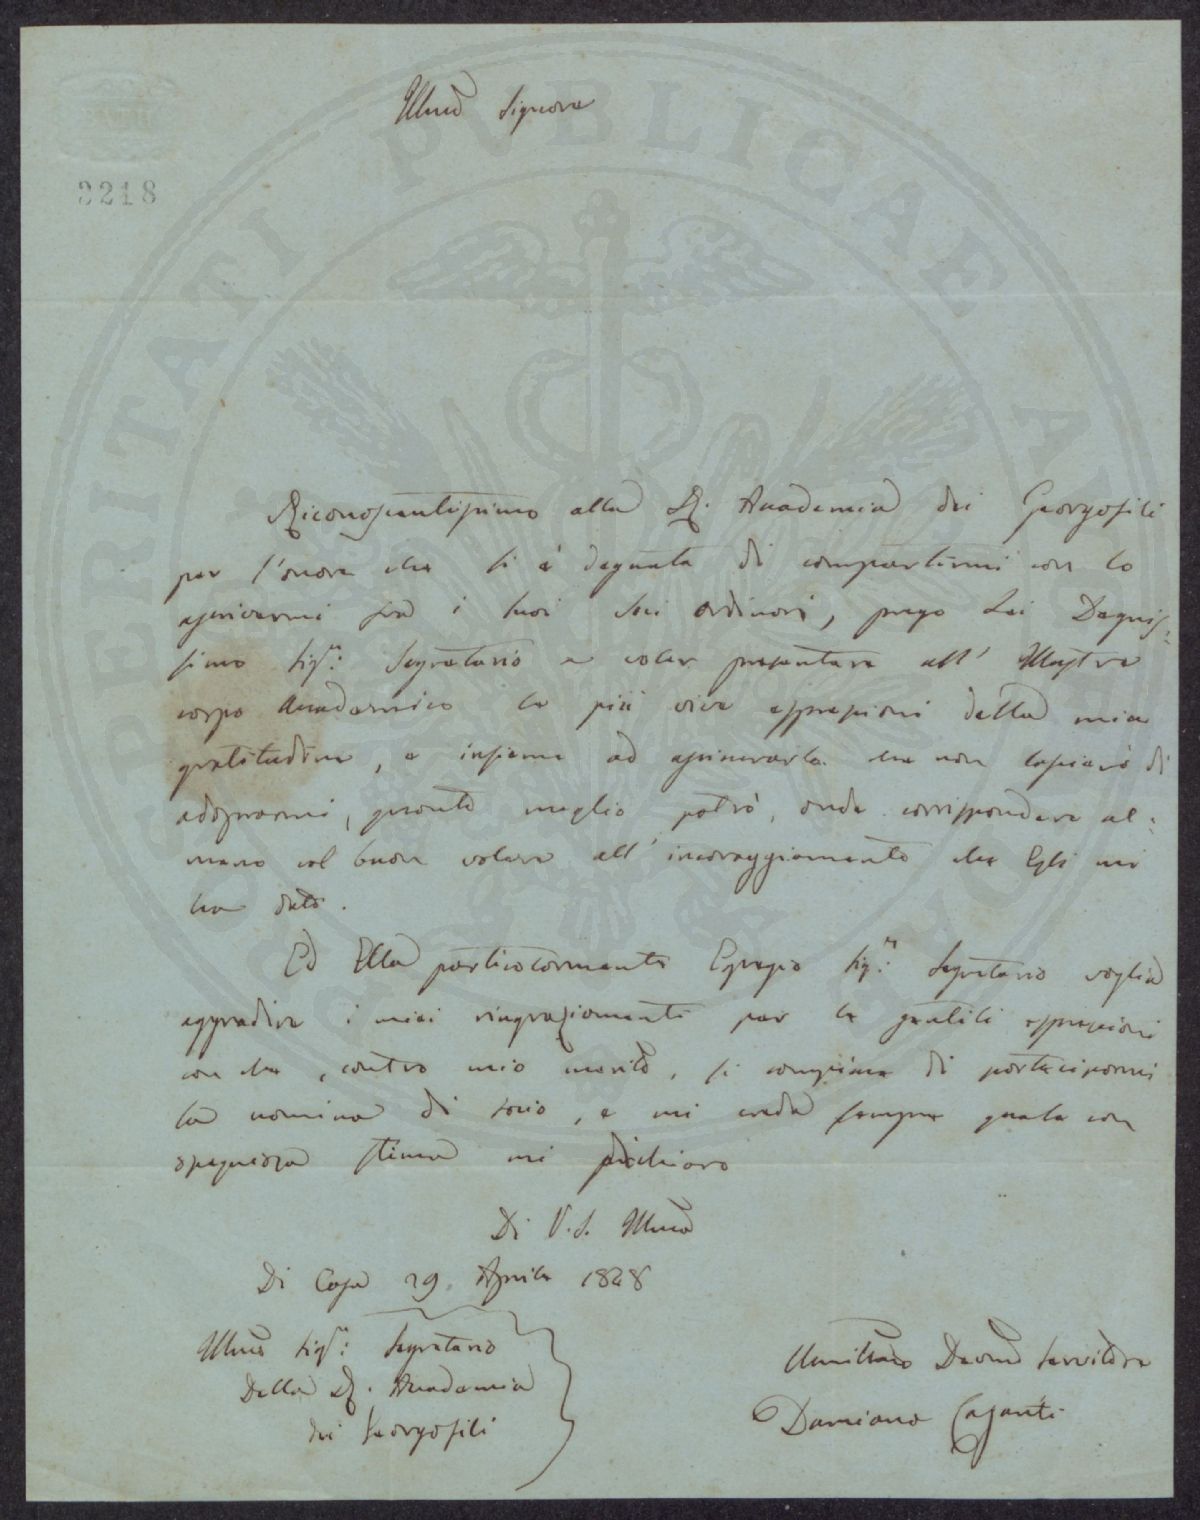 Illmo Signore
3218
PROSPERITATI PVBLICAE AVGENDAE
Riconoscentissimo alla R. Accademia dei Georgofili
per l'onore che si è degnata di compartirmi con lo
ascrivermi fra i suoi Soci Ordinarj, prego Lei Degnis=
simo Sigr: Segretario a voler presentare all' Illustre
corpo Accademico le più vive espressioni della mia
gratitudine, e insieme ad assicurarla che non lascierò di
adoprarmi, quanto meglio potrò, onde corrispondere al=
meno col buon volere all' incoraggiamento che Egli mi
ha dato.
Ed Ella particolarmente Egregio Sigr: Segretario voglia
aggradire i miei ringraziamenti per le gentili espressioni
con che, contro mio merito, si compiace di parteciparmi
la nomina di socio, e mi creda sempre quale con
ossequiosa stima mi dichiaro
Di V. S. Illma
Di Casa 29. Aprile 1828
Illmo Sigr: Segretario
Della R. Accademia
dei Georgofili
Umilissmo Devmo Servitore
Damiano Casanti